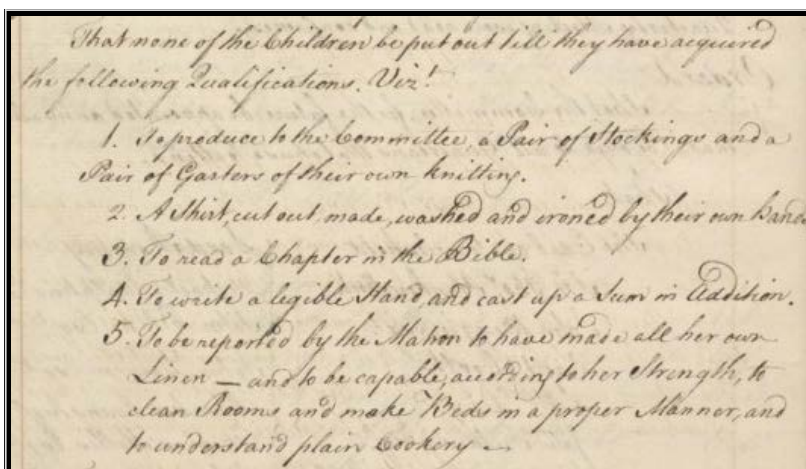 That none of the Children be put out till they have acquired
the following Qualifications. Viz.t
1. To produce to the Committee, a Pair of Stockings and a
Pair of Garters of their own knitting.
2. A Shirt, cut out, made, washed and ironed by their own hands
3. To read a Chapter in the Bible.
4. To write a legible Hand, and cast up a Sum in Addition.
5. To be reported by the Matron to have made all her own
Linen — and to be capable, according to her Strength, to
clean Rooms and make Beds in a proper Manner, and
to understand plain Cookery —